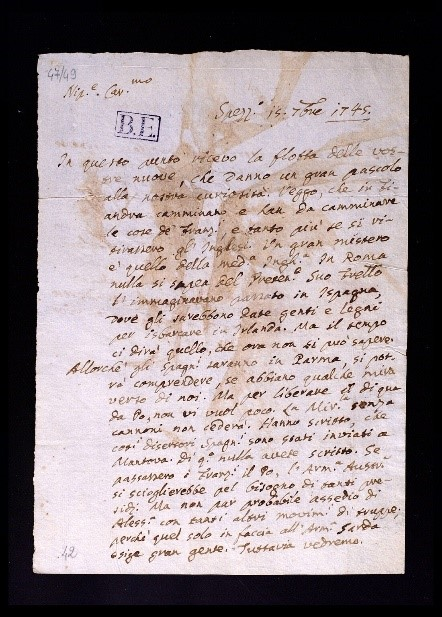 47/49
Nip.e Car.mo
B.E.
Spezz.o 15. 7bre 1745.
In questo punto ricevo la flotta delle vos-
tre nuove, che danno un gran pascolo
alla nostra curiosità. Veggo, che in Fi-
andra camminano e han da camminare
le cose de' Franz.i e tanto più se si ri-
tirassero gli Inglesi. Un gran mistero
è quello della med.a Ingh.a In Roma
nulla si sapea del Preten.e Suo Frello
l'immaginavano passato in Ispagna,
dove gli sarebbono date genti e legni
per isbarcare in Irlanda. Ma il tempo
ci dirà quello, che ora non si può sapere.
Allorché gli Spagn.i saranno in Parma, si pot-
rà comprendere, se abbiano qualche mira
verso di noi. Ma per liberare il di qua
da Po, non vi vuol poco. La Mir.a senza
cannoni non cederà. Hanno scritto, che
così disertori Spagn.i sono stati inviati a
Mantova. Di q.o nulla avete scritto. Se
passassero i Franz.i il Po, l'Arm.a Austri.
si scioglierebbe pel bisogno di tanti pre-
sidi. Ma non par probabile assedio di
Aless.a con tanti altri movim.i di truppe;
perché quel solo in faccia all'Arm.a Sarda
esige gran gente. Tuttavia vedremo.
42